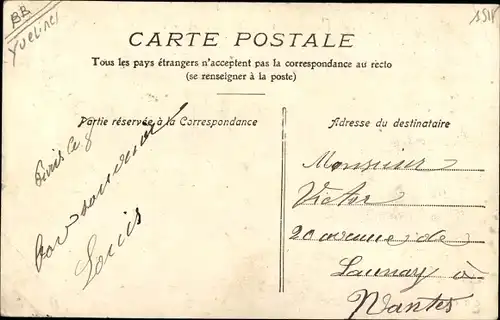 BB
Yvelines
CARTE POSTALE
Tous les pays étrangers n'acceptent pas la correspondance au recto
(se renseigner à la poste)
Partie réservée à la Correspondance
Adresse du destinataire
Paris le 8
Louis
Monsieur
Victor
20 avenue de
Launay à
Nantes